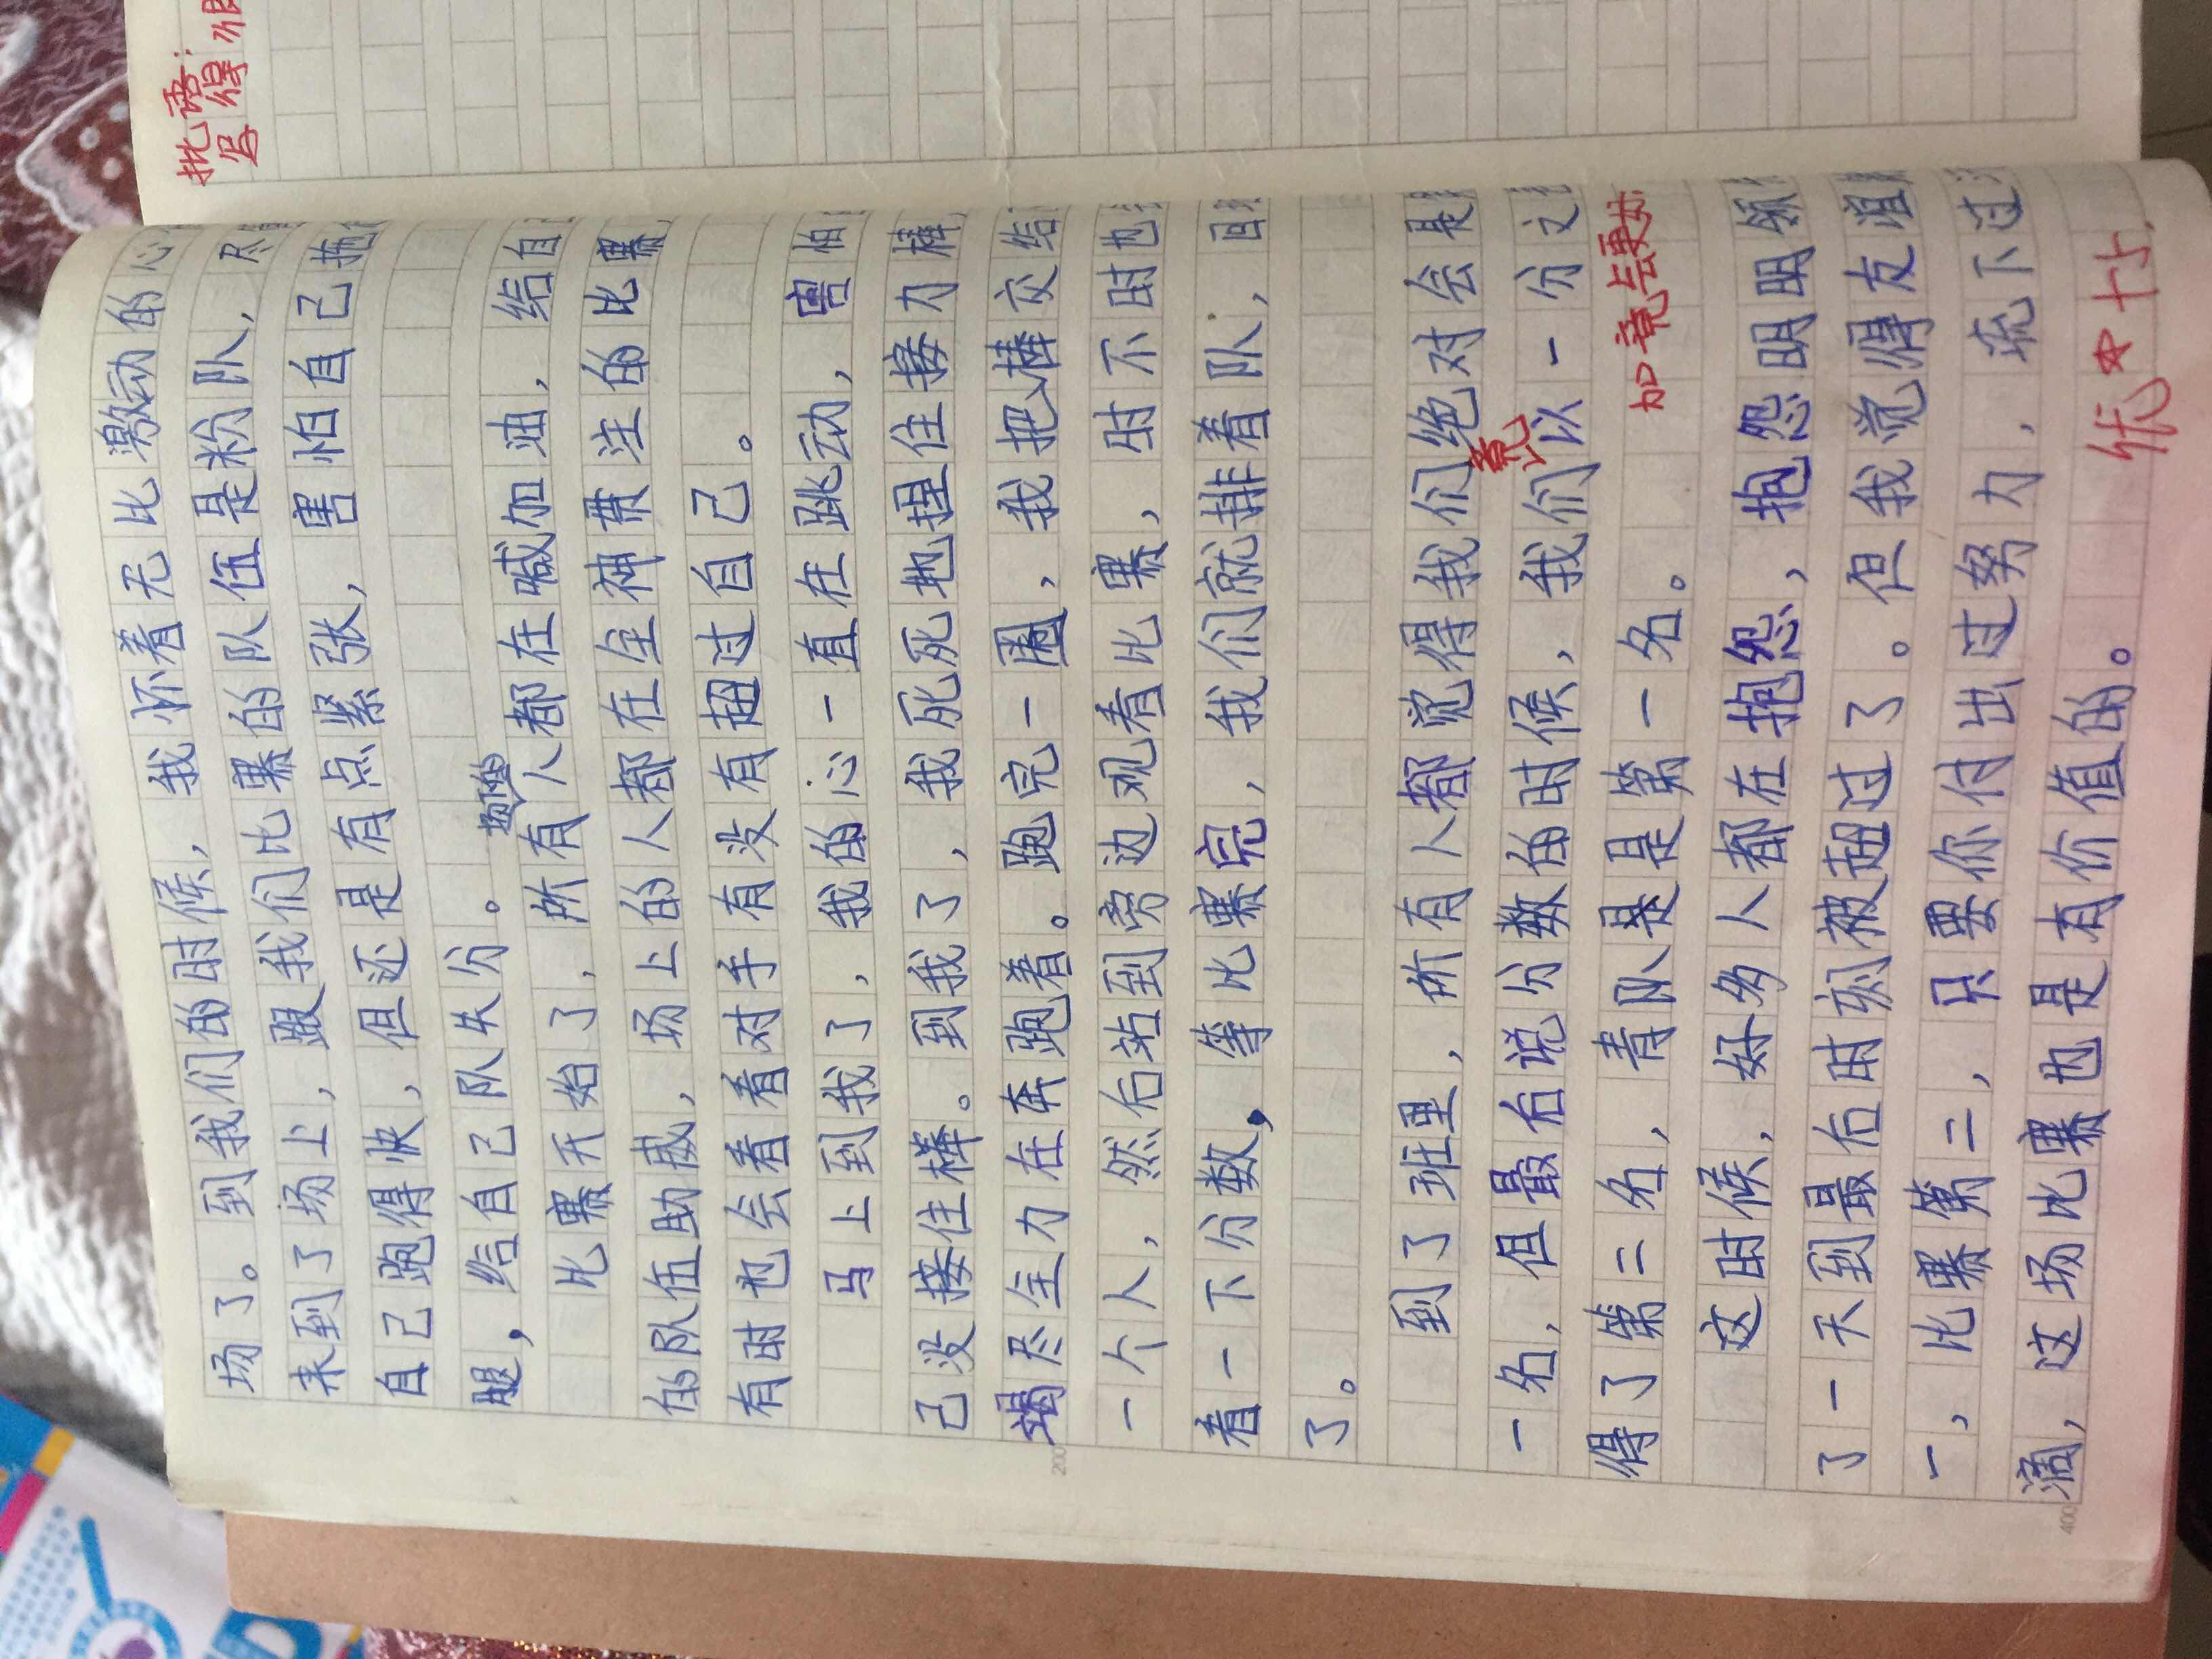 场了。到我们的时候，我怀着无比激动的心
来到了场上，跟我们比赛的队伍是粉队，尽
自己跑得快，但还是有点紧张，害怕自己拖
腿，给自己队失分。
场外的
比赛开始了，所有人都在喊加油，给自
的队伍助威，场上的人都在全神贯注的比赛
有时也会看看对手有没有超过自己。
马上到我了，我的心一直在跳动，害怕
己没接住棒。到我了，我死死地捏住接力棒
竭尽全力在奔跑着。跑完一圈，我把棒交给
一个人，然后站到旁边观看比赛，时不时也
看一下分数，等比赛完，我们就排着队，回
了。
到了班里，所有人都觉得我们绝对会是
竟
一名，但最后说分数的时候，我们以一分之
得了第二名，青队是是第一名。
加竟会更好
这时候，好多人都在抱怨，抱怨明明领
了一天到最后时刻被超过了。但我觉得友谊
一，比赛第二，只要你付出过努力，流下过
滴，这场比赛也是有价值的。
优★ 十分
批语：
写得